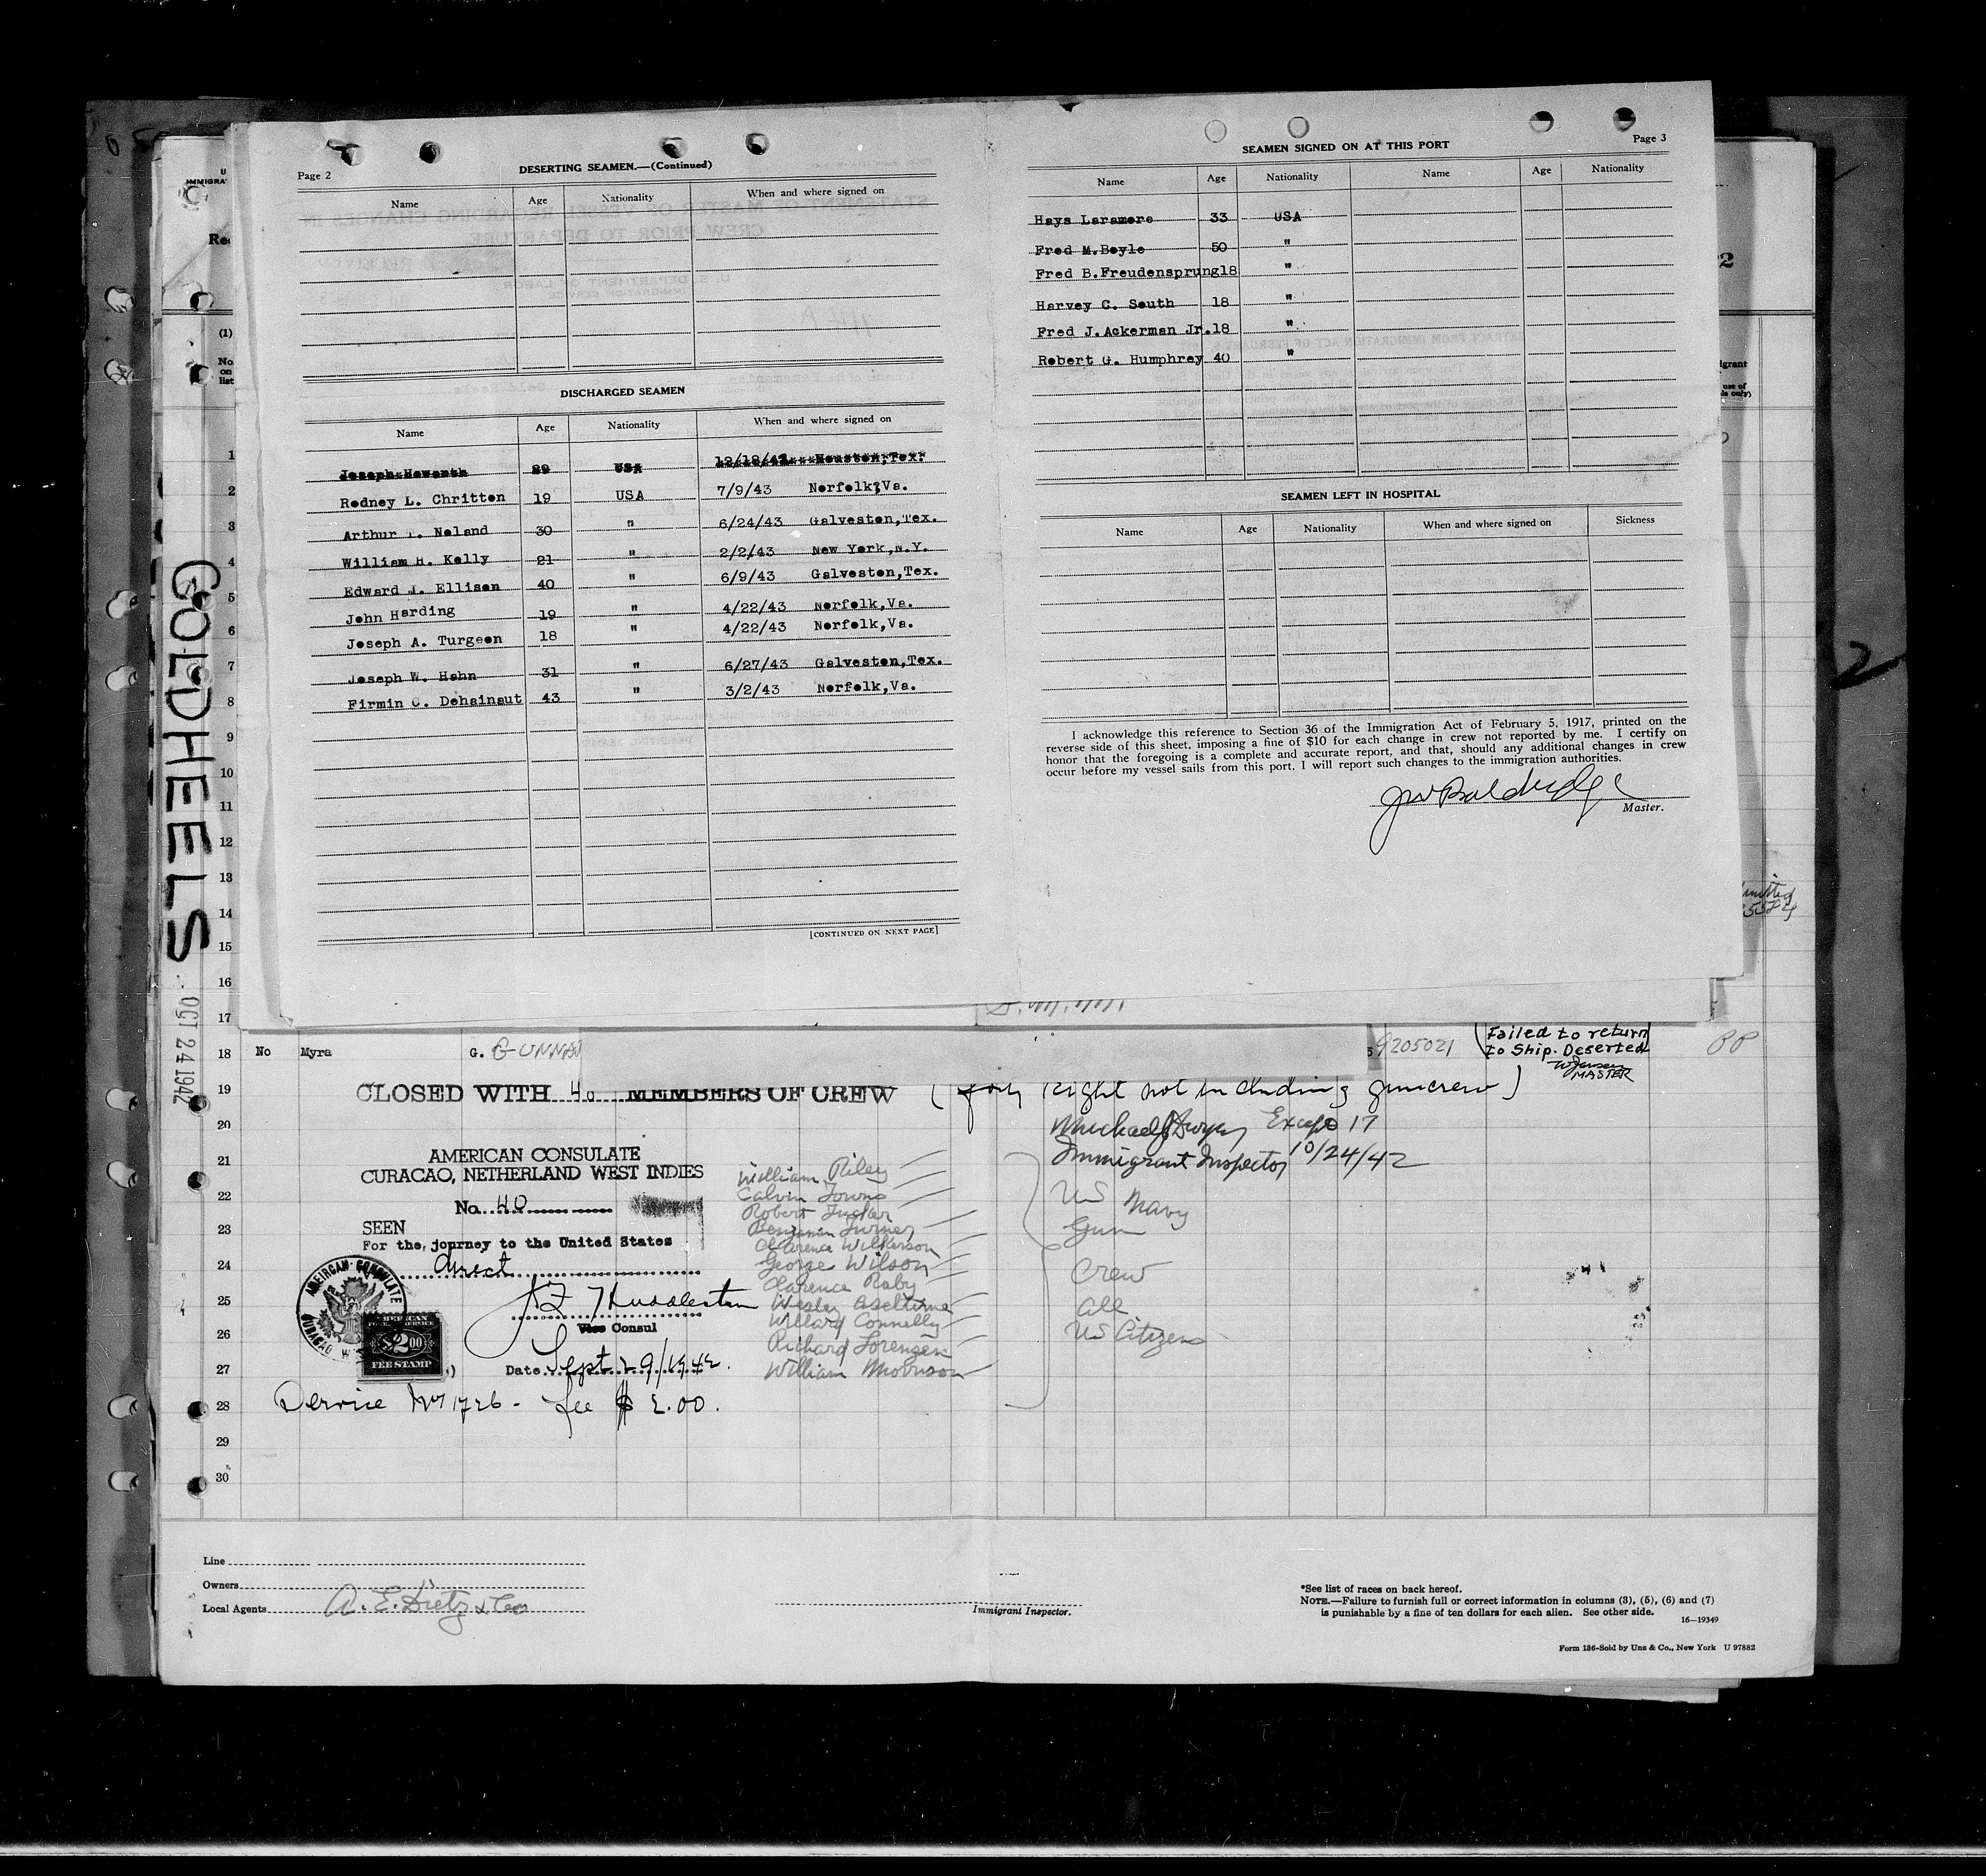 Page 2
DESERTING SEAMEN.—(Continued)
Name Age Nationality When and where signed on
DISCHARGED SEAMEN
Name Age Nationality When and where signed on
Joseph Howarth 29 USA 12/18/42 Houston, Tex.
Rodney L. Chritton 19 USA 7/9/43 Norfolk, Va.
Arthur T. Noland 30 " 6/24/43 Galveston, Tex.
William H. Kelly 21 " 2/2/43 New York, N.Y.
Edward J. Ellison 40 " 6/9/43 Galveston, Tex.
John Harding 19 " 4/22/43 Norfolk, Va.
Joseph A. Turgeon 18 " 4/22/43 Norfolk, Va.
Joseph W. Hahn 31 " 6/27/43 Galveston, Tex.
Firmin C. Dehainaut 43 " 3/2/43 Norfolk, Va.
[CONTINUED ON NEXT PAGE]
Page 3
SEAMEN SIGNED ON AT THIS PORT
Name Age Nationality Name Age Nationality
Hays Laramore 33 USA
Fred M. Boyle 50 "
Fred B. Freudensprung 18 "
Harvey C. South 18 "
Fred J. Ackerman Jr. 18 "
Robert G. Humphrey 40 "
SEAMEN LEFT IN HOSPITAL
Name Age Nationality When and where signed on Sickness
I acknowledge this reference to Section 36 of the Immigration Act of February 5, 1917, printed on the
reverse side of this sheet, imposing a fine of $10 for each change in crew not reported by me. I certify on
honor that the foregoing is a complete and accurate report, and that, should any additional changes in crew
occur before my vessel sails from this port, I will report such changes to the immigration authorities.
JW Baldridge
Master.
GOLDHEELS
OCT 24 1942
2
(1)
No
on
list
1
2
3
4
5
6
7
8
9
10
11
12
13
14
15
16
17
18 No Myra G. GUNNAR 9205021 Failed to return
to Ship. Deserted
MASTER
PP
19 CLOSED WITH 40 MEMBERS OF CREW (forty Eight not including guncrew)
20 Michael J Dwyer
Immigrant Inspector 10/24/42
21 AMERICAN CONSULATE
CURACAO, NETHERLAND WEST INDIES
22 No. 40
23 SEEN
For the journey to the United States
24 direct
25
Vice Consul
26
27 Date Sept 29/1942.
28 Service No 1726 - fee $ 2.00.
29
30
AMERICAN CONSULATE
CURACAO
AMERICAN
FOREIGN SERVICE
$2.00
FEE STAMP
William Riley
Calvin Towns
Robert Tucker
Benjamin Turner
Clarence Wilkerson
George Wilson
Clarence Raby
Wesley Aseltine
Willard Connelly
Richard Sorensen
William Morrison
US Navy
Gun
Crew
All
US Citizens
Line
Owners
Local Agents A. E. Dietz & Co
Immigrant Inspector.
*See list of races on back hereof.
NOTE.—Failure to furnish full or correct information in columns (3), (5), (6) and (7)
is punishable by a fine of ten dollars for each alien. See other side.
16—19349
Form 136-Sold by Unz & Co., New York U 97882